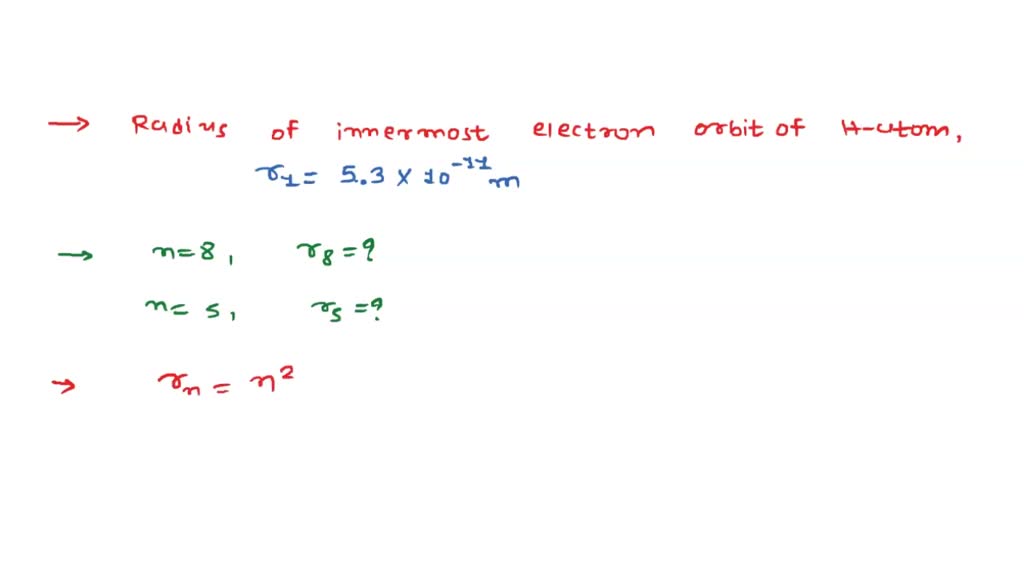 → Radius of innermost electron orbit of H-atom,
r₁ = 5.3 × 10⁻¹¹ m
→ n=8, r₈ = ?
n= 5, r₅ = ?
→ rₙ = n²